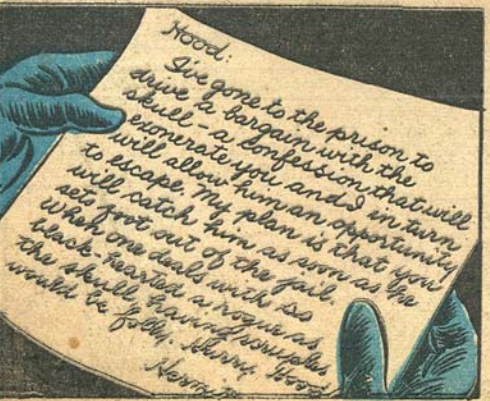 Hood:
I've gone to the prison to
drive a bargain with the
skull - a confession that will
exonerate you and I in turn
will allow him an opportunity
to escape. My plan is that you
will catch him as soon as he
sets foot out of the jail.
When one deals with so
black-hearted a rogue as
the skull having scruples
would be folly. Hurry, Hood